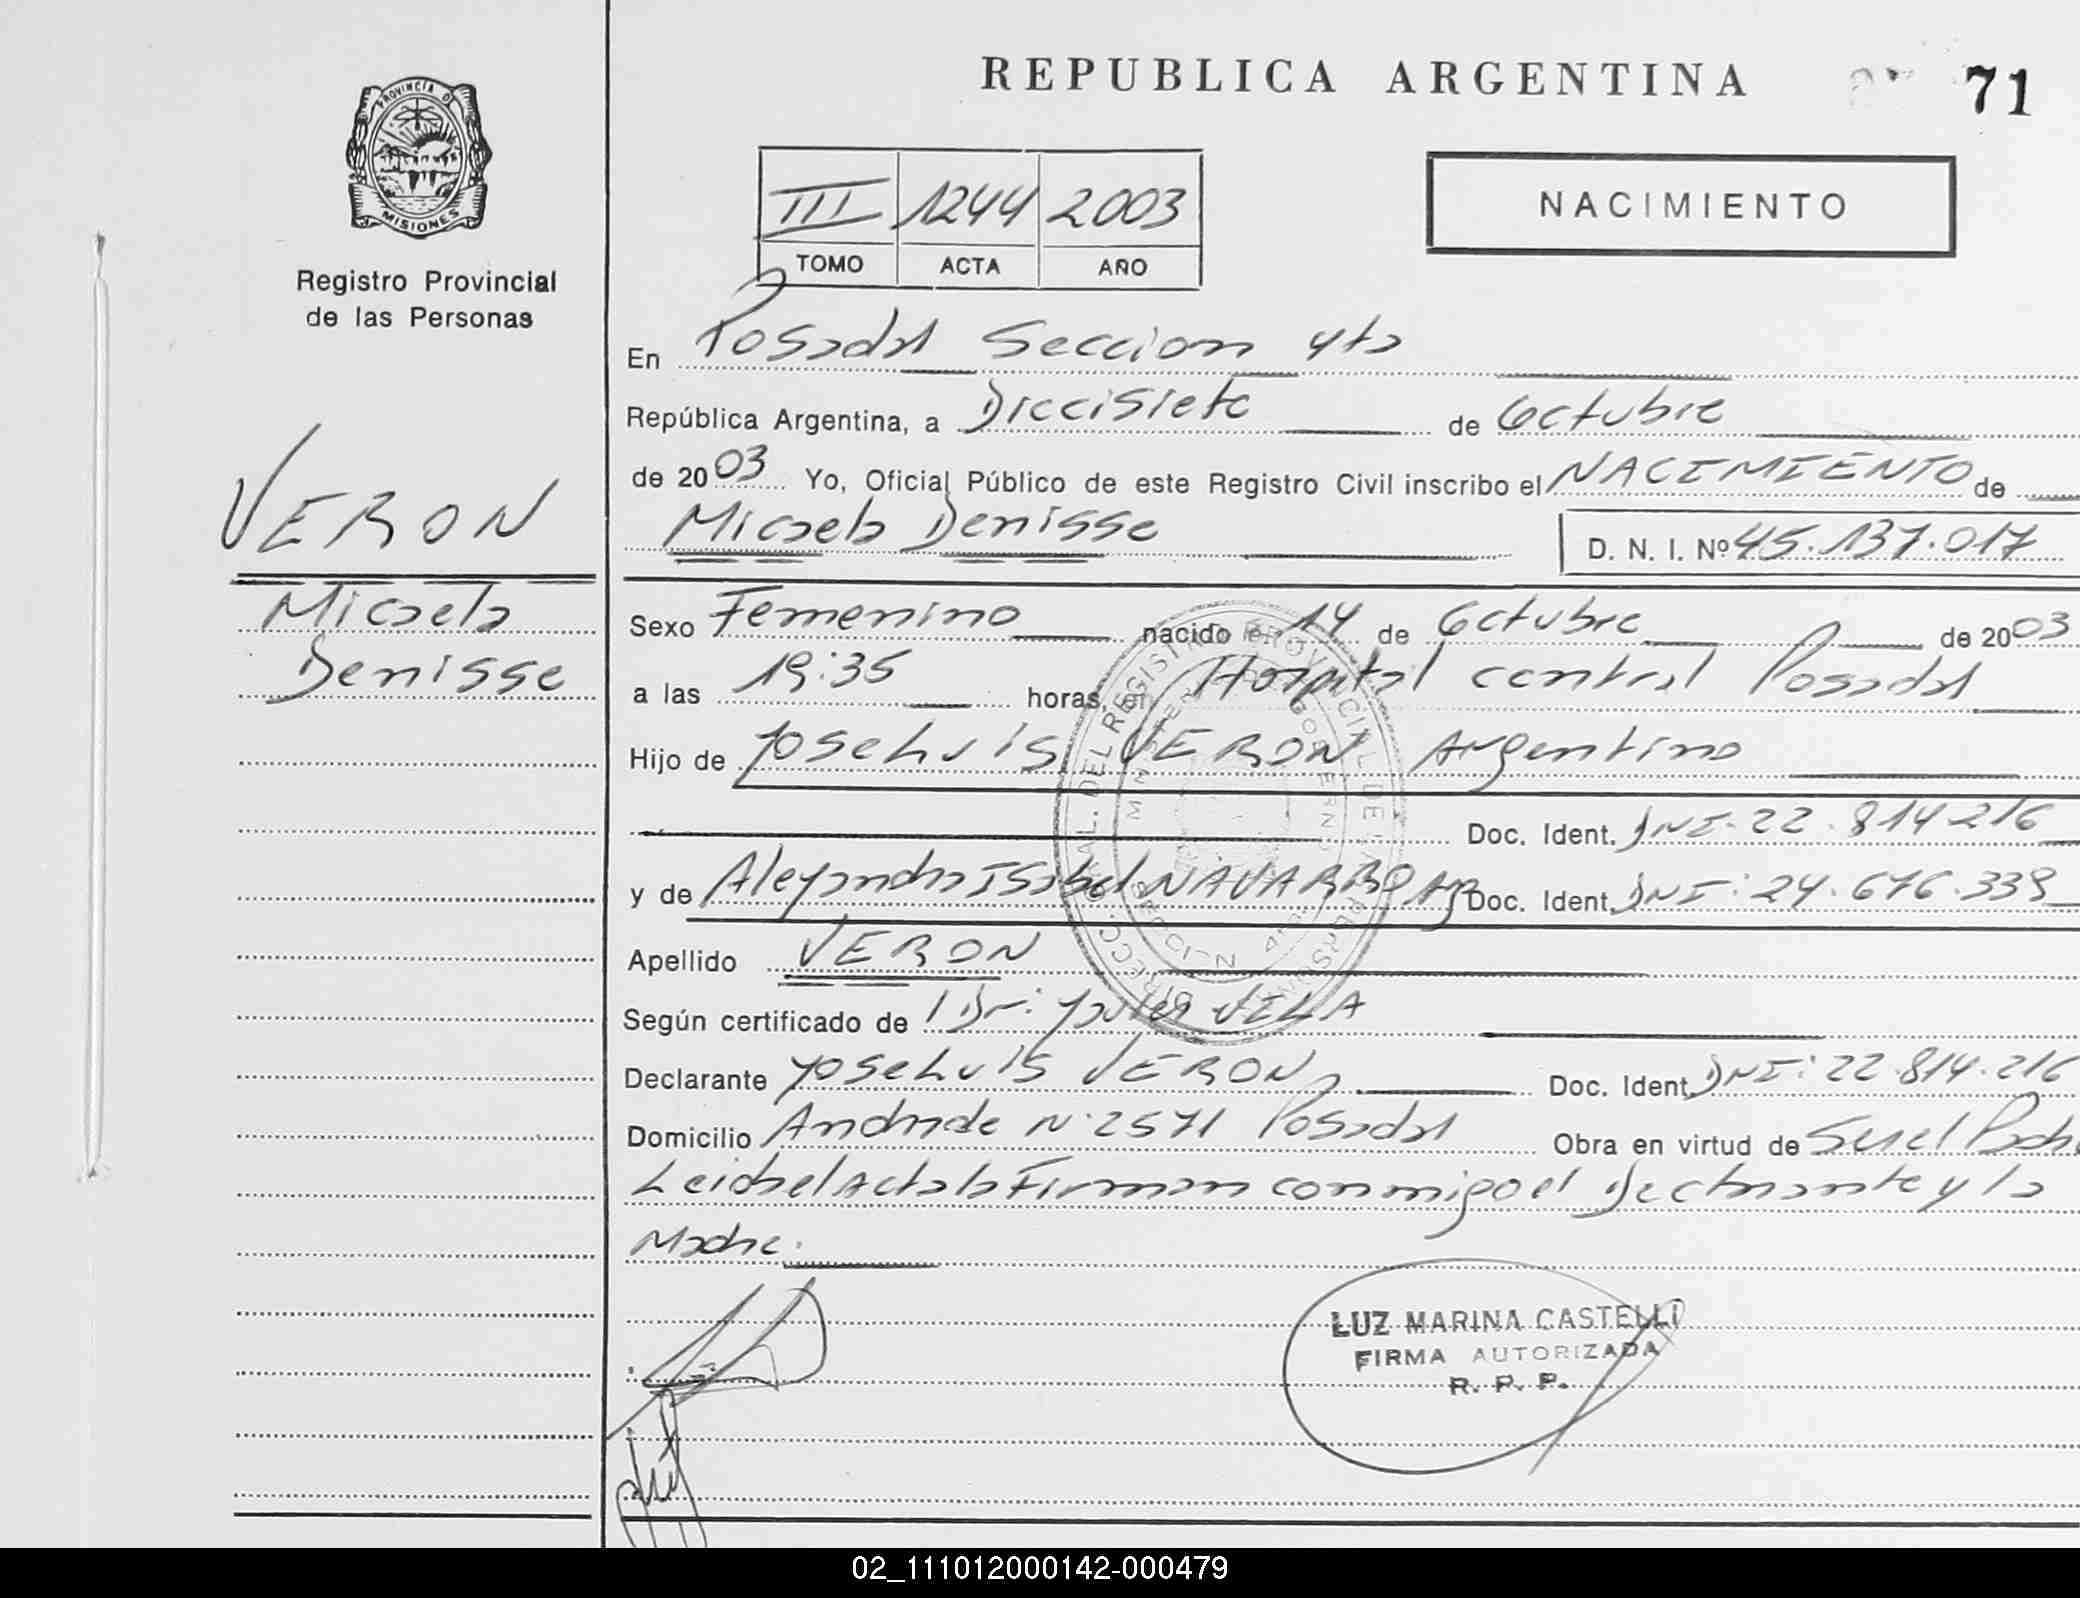 REPUBLICA ARGENTINA
71
PROVINCIA DE
MISIONES
Registro Provincial
de las Personas
III 1244 2003
TOMO ACTA AÑO
NACIMIENTO
En Posadas Seccion 4ta
República Argentina, a Diecisiete de Octubre
de 2003 Yo, Oficial Público de este Registro Civil inscribo el NACIMIENTO de
Micaela Denisse D. N. I. Nº 45.137.017
VERON
Micaela
Denisse
Sexo Femenino nacido el 14 de Octubre de 2003
a las 19:35 horas, en Hospital central Posadas
Hijo de Jose Luis VERON Argentino
Doc. Ident. DNI. 22.814.216
y de Alejandra Isabel NAVARRO Arg Doc. Ident. DNI: 24.676.339
Apellido VERON
Según certificado de Dr: Javier VILLA
Declarante Jose Luis VERON Doc. Ident. DNI: 22.814.216
Domicilio Andrade Nº 2571 Posadas Obra en virtud de Ser el Padre
Leida el Acta la Firman conmigo el Declarante y la
Madre.
LUZ MARINA CASTELLI
FIRMA AUTORIZADA
R. P. P.
02_111012000142-000479